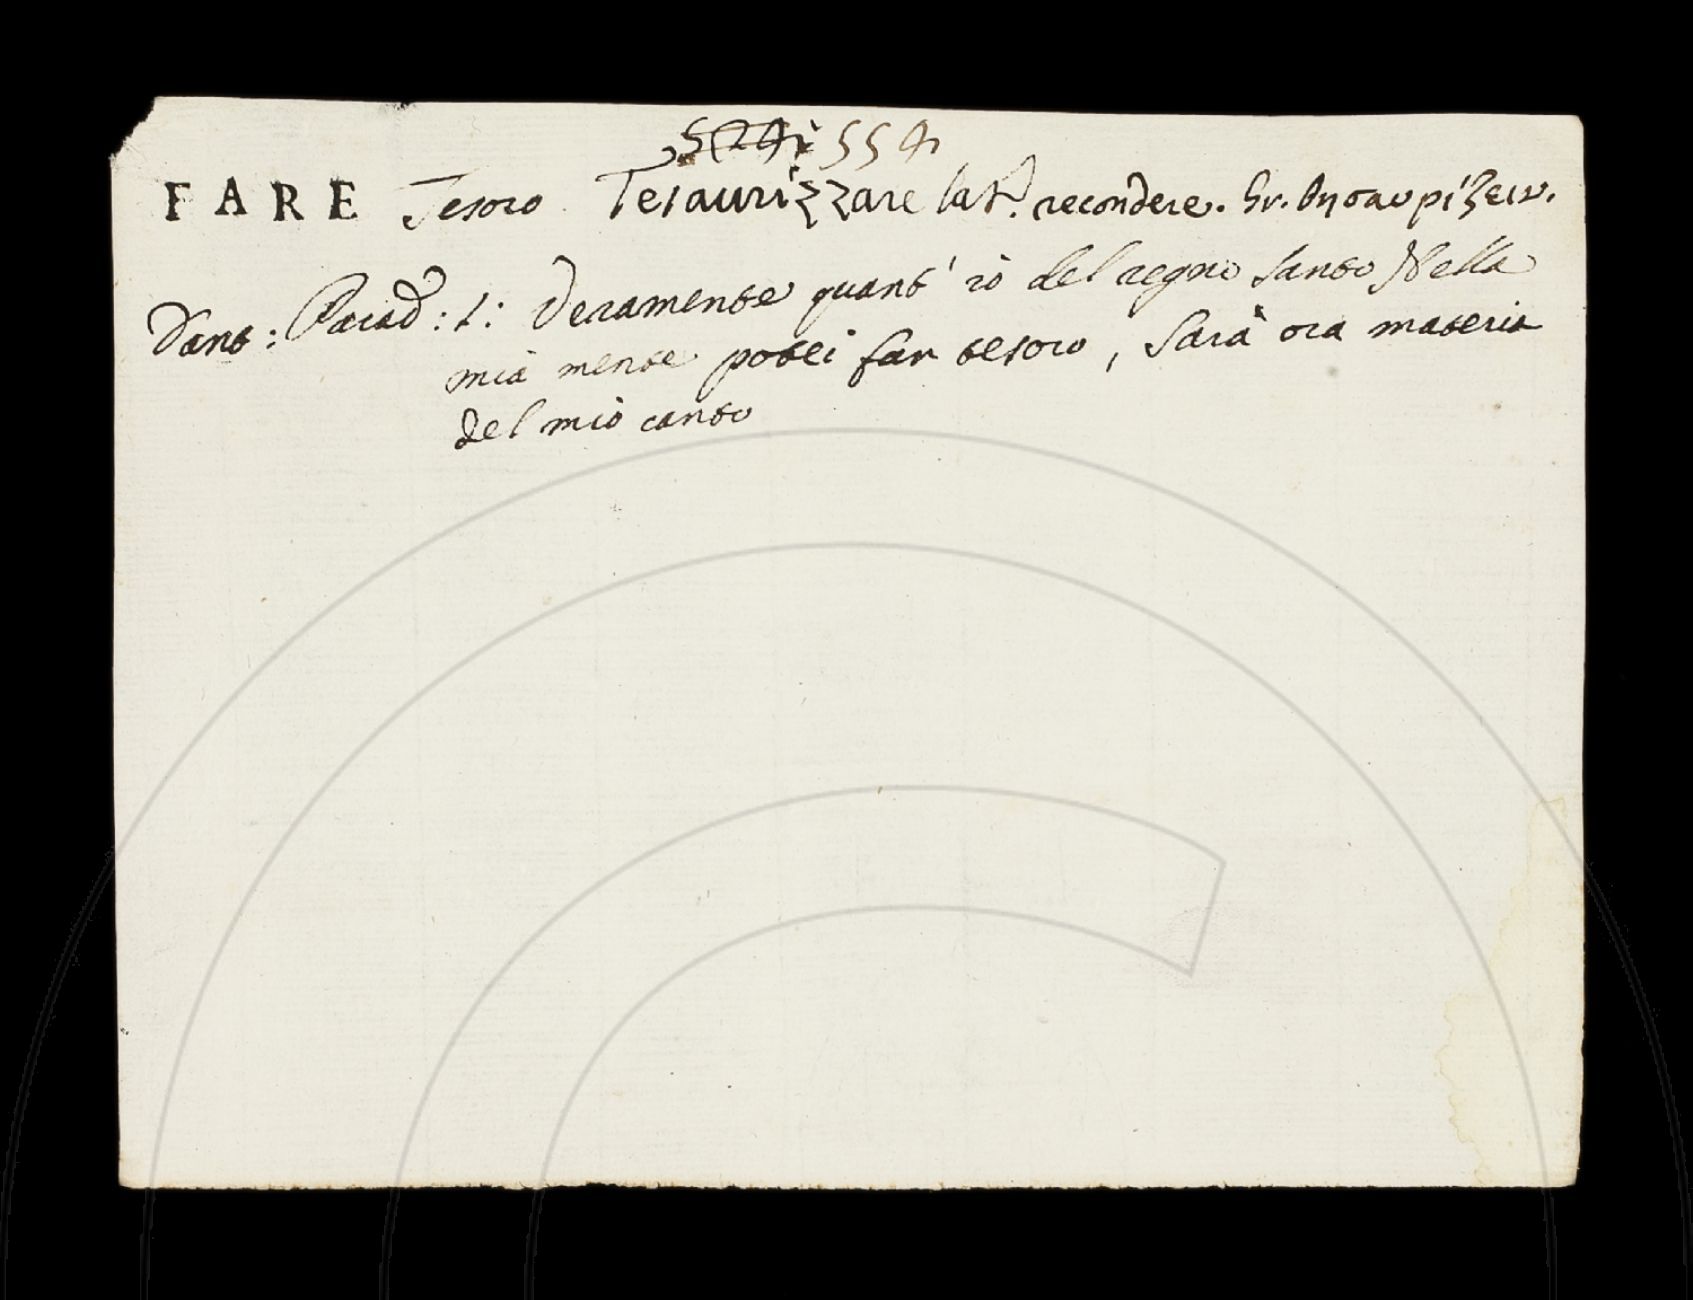 554
FARE Tesoro Tesaurizzare lat. recondere. Gr. θησαυρίζειν.
Dant: Parad: 1: Veramente quant' io del regno santo Nella
mia mente potei far tesoro, Sarà ora materia
del mio canto